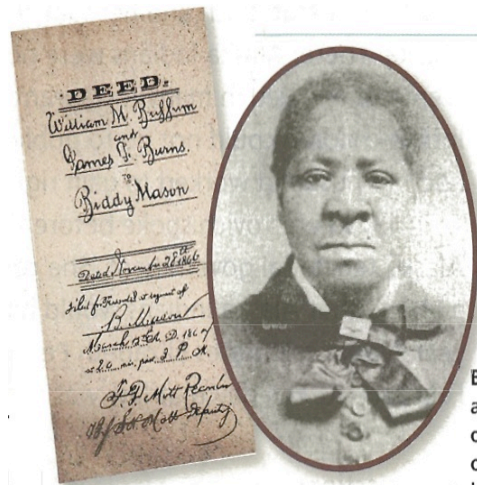 DEED.
William M. Buffum
and
James F. Burns.
to
Biddy Mason
Dated November 28th 1866
Filed for Record at request of
B. Mason
March 5th A. D. 186
at 20 min. past 3 P. M.
T. D. Mott Recorder
Deputy